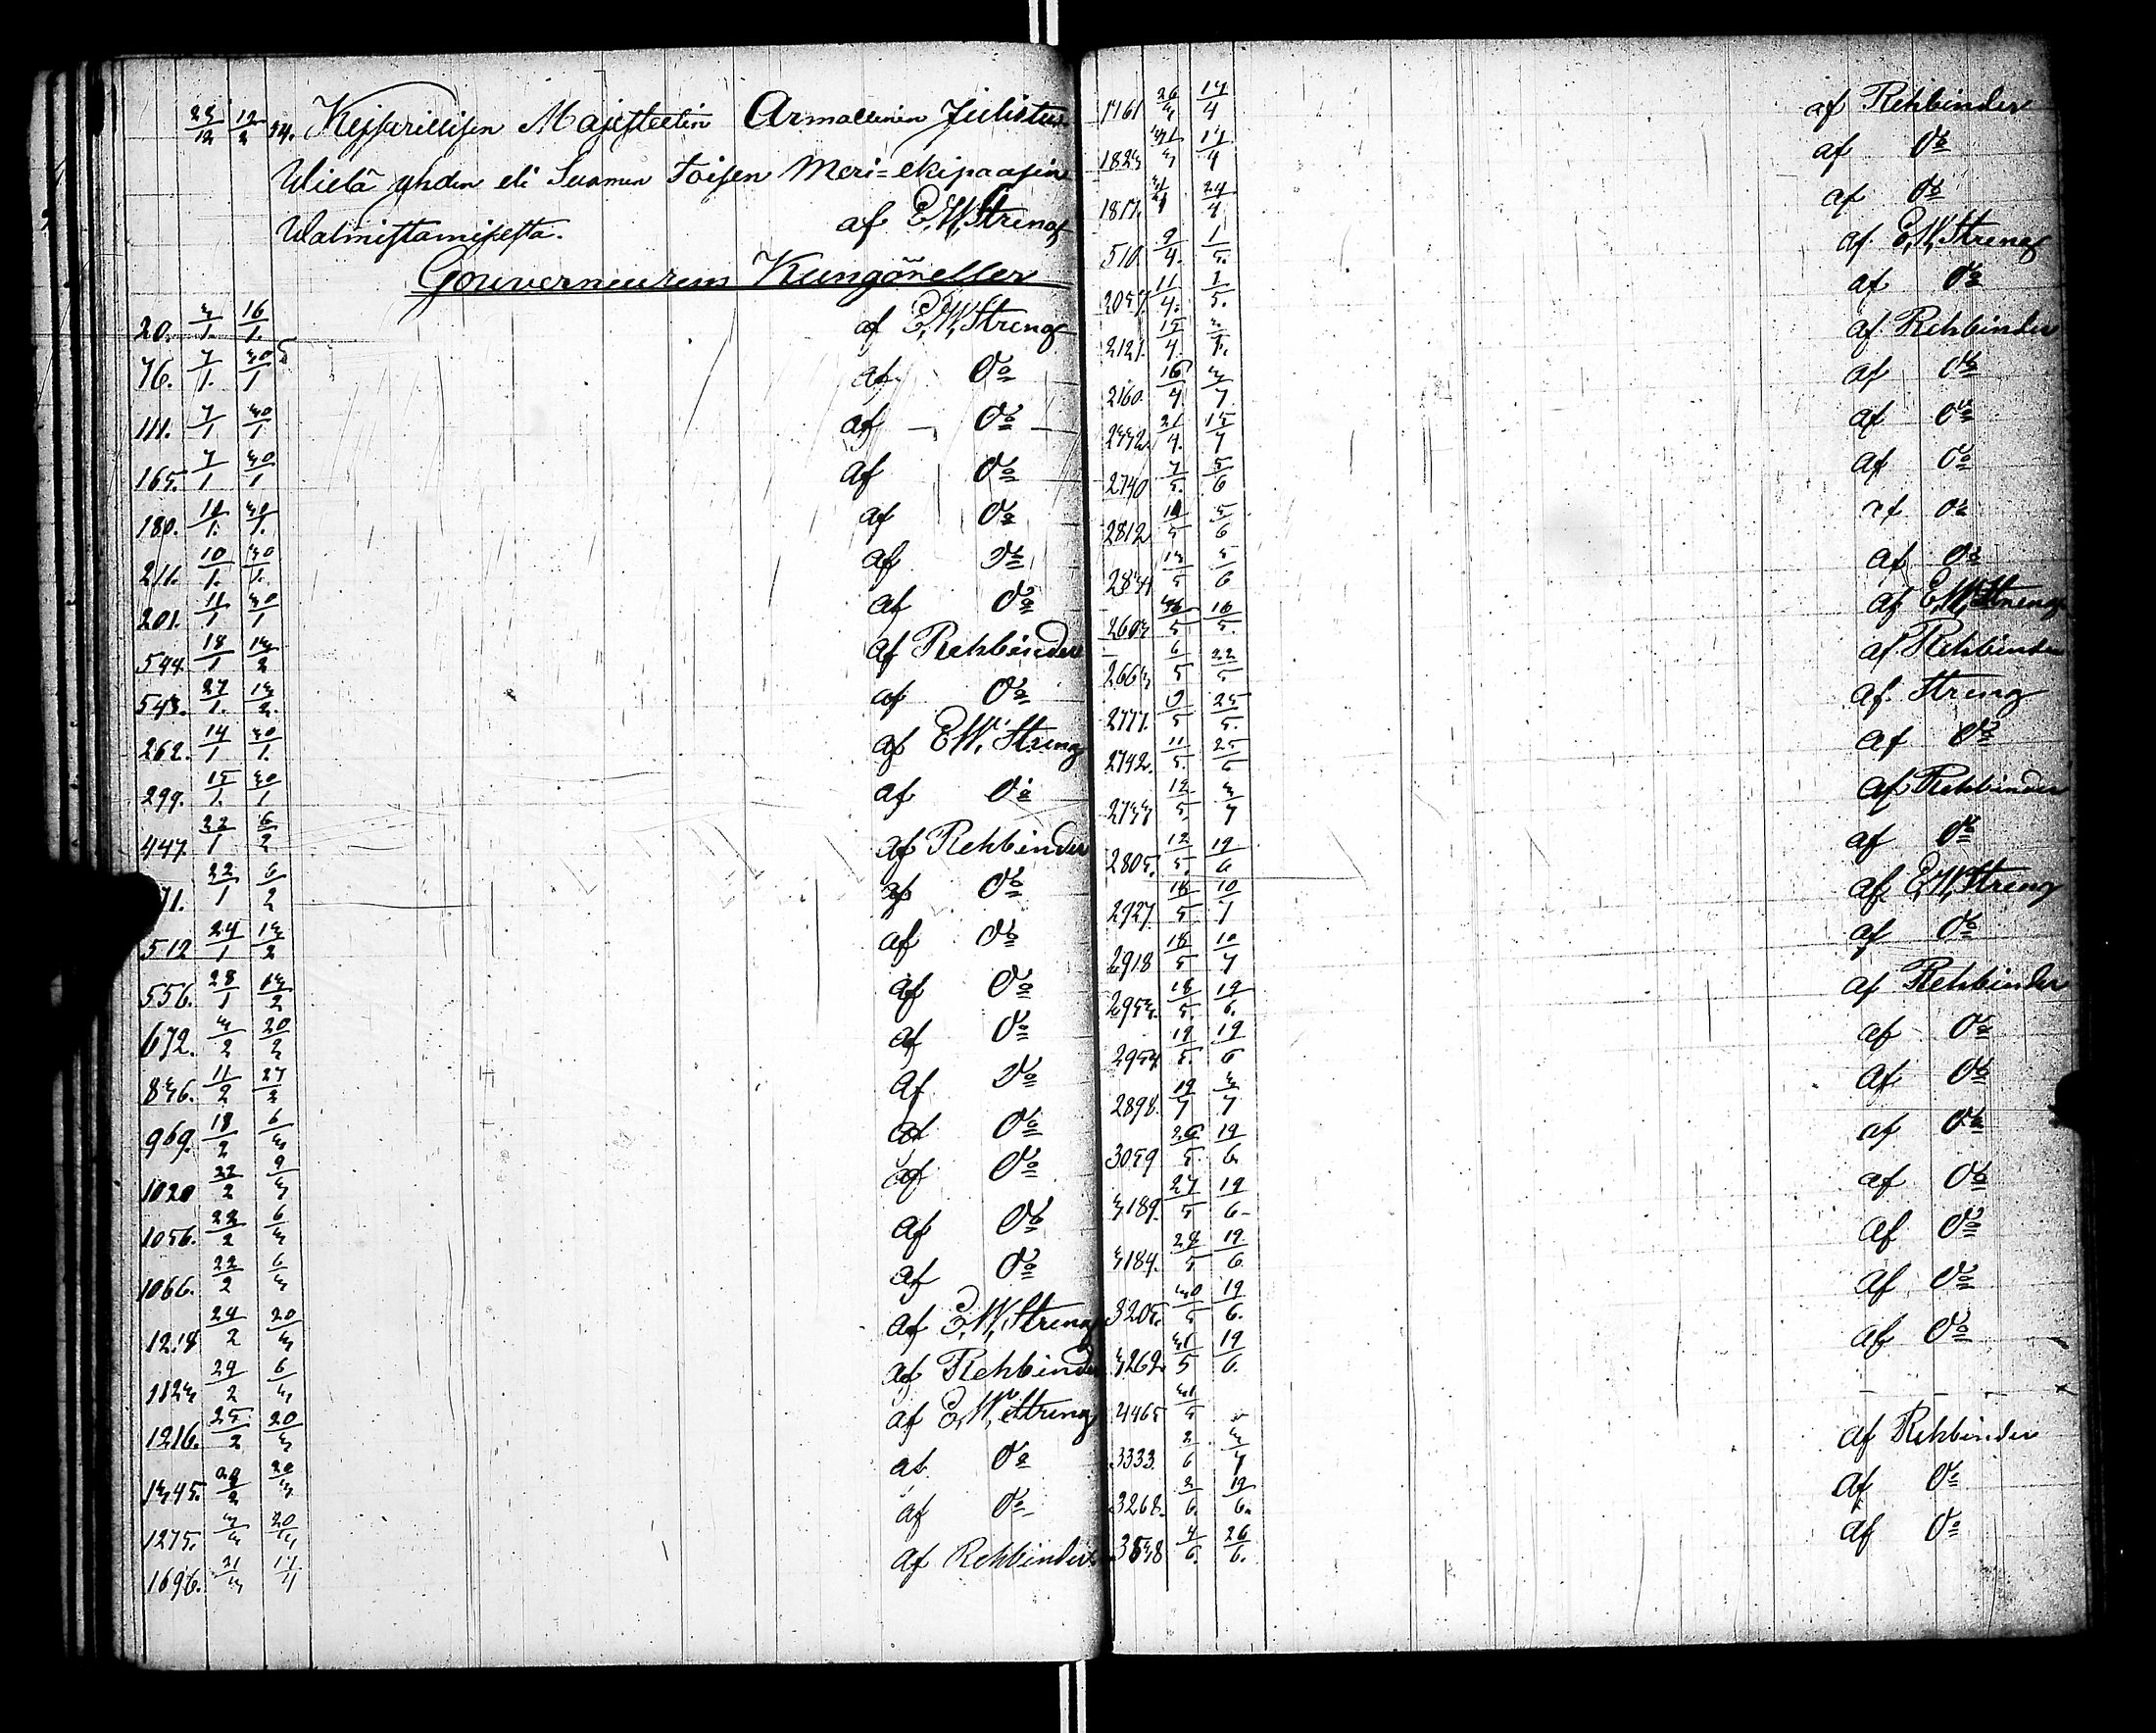 23/12 12/2 24. Kejsarillisen Majesteetin Armallinen Julistus
Wielä yhden eli Suomen Toisen Meri=ekipaasin
Walmistamisesta. af E. W. Streng
Gouverneurens Kungörelser
20. 3/1. 16/1. af E. W. Streng
76. 7/1. 30/1 af Do
111. 7/1 30/1 af Do
165. 7/1 30/1 af Do
180. 10/1. 30/1. af Do
211. 10/1. 30/1. af Do
201. 11/1 30/1 af Do
544. 18/1 13/2 af Rehbinder
543. 27/1. 13/2. af Do
262. 14/1 30/1. af E. W. Streng
299. 15/1. 30/1. af Do
447. 22/1 6/2 af Rehbinder
71. 22/1 6/2 af Do
512 24/1 13/2 af Do
556. 28/1 13/2 af Do
672. 3/2 20/2 af Do
836. 11/2 27/2 af Do
969. 18/2 6/3 af Do
1020 22/2 9/3 af Do
1056. 22/2 6/3 af Do
1066. 22/2 6/3 af Do
1214 24/2 20/3 af E. W. Streng
1123 24/2 6/3 af Rehbinder
1216. 25/2 20/3 af E. W. Streng
1345. 29/2 20/3 af Do
1275. 3/3 20/3 af Do
1696. 21/3 17/4 af Rehbinder
1761 26/3 17/4 af Rehbinder
1823 31/3 17/4 af Do
1817. 31/3 24/4 af Do
510. 9/4. 1/5. af E. W. Streng
2037. 11/4. 1/5. af Do
2121. 15/4. af Rehbinder
2160. 16/4 3/7. af Do
2332. 21/4. 15/7 af Do
2740 7/5. 5/6 af Do
2812 10/5 5/6 af Do
2834 13/5 5/6 af Do
2603 16/5. af E. W. Streng
2663 6/5 22/5 af Rehbinder
2777. 9/5 25/5. af Streng
2742. 11/5. 25/6 af Do
2733 12/5. 3/7 af Rehbinder
2805. 12/5. 19/6 af Do
2927. 18/5. 10/7 af E. W. Streng
2918 18/5 10/7 af Do
2953. 18/5. 19/6. af Rehbinder
2954. 19/5. 19/6 af Do
2898. 19/7 3/7 af Do
3059 26/5. 19/6. af Do
3189. 27/5 19/6- af Do
3184. 28/5 19/6. af Do
3205. 30/5 19/6. af Do
3262. 31/5 19/6. af Do
4465 31/5
3333. 2/6 3/7 af Rehbinder
3268. 2/6. 19/6. af Do
3538 4/6. 26/6. af Do